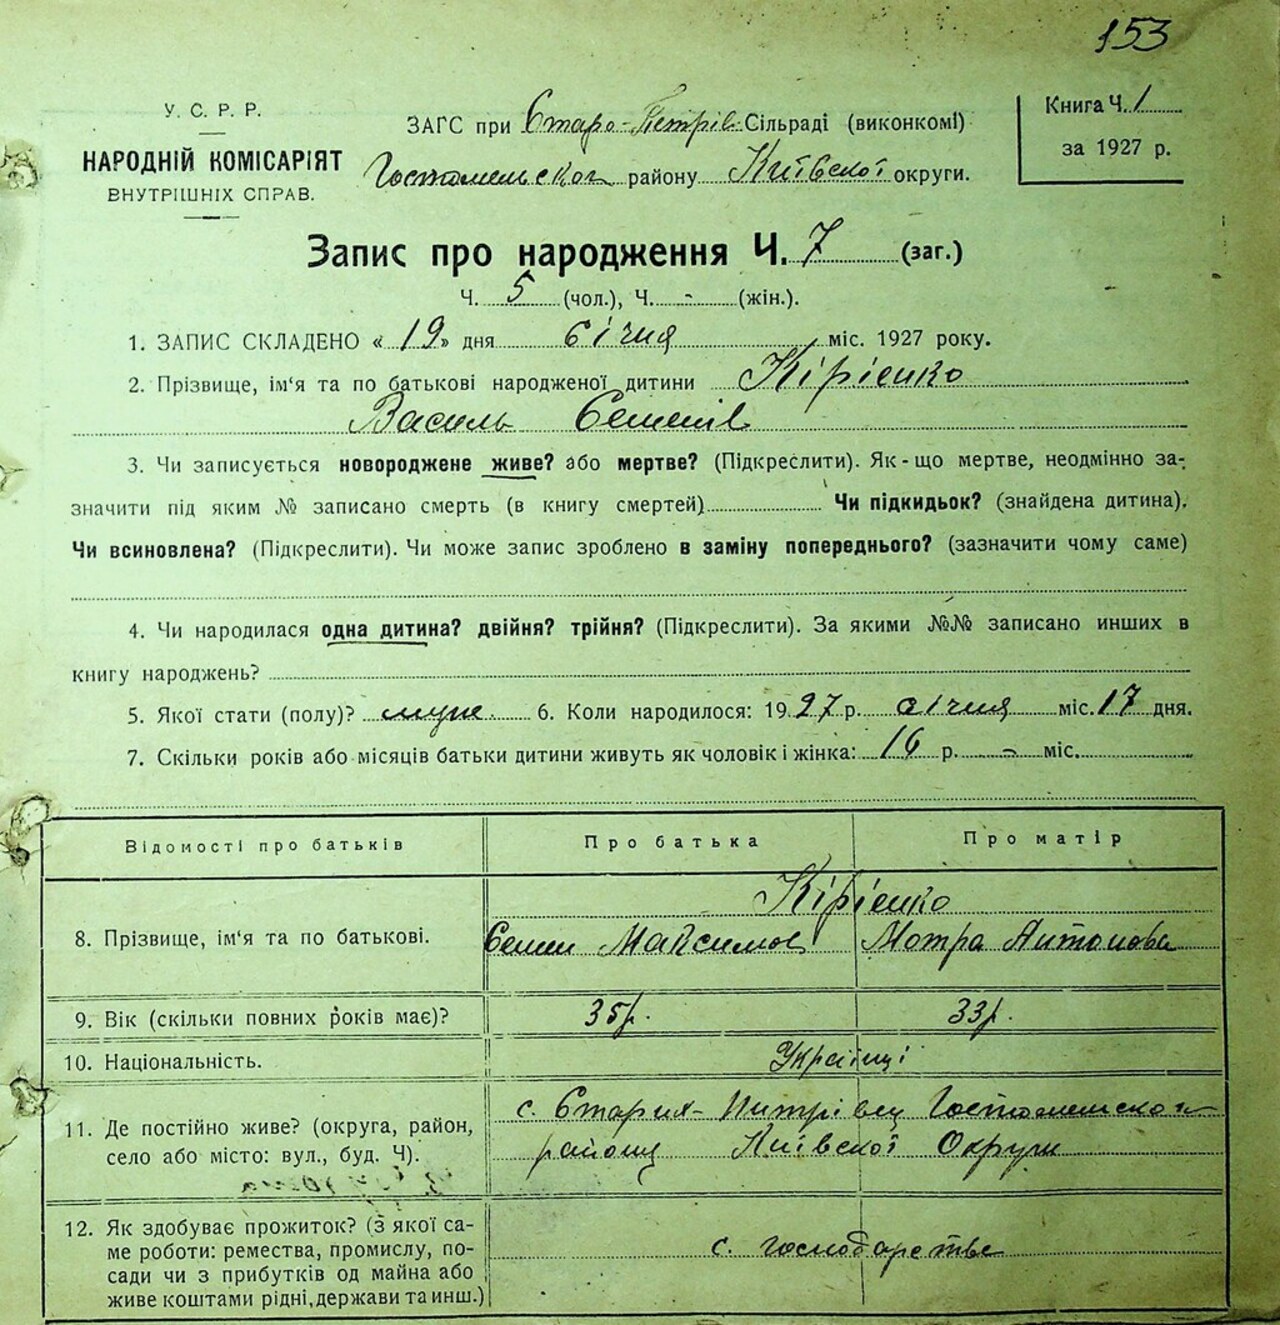 153
У. С. Р. Р.
НАРОДНІЙ КОМІСАРІЯТ
ВНУТРІШНІХ СПРАВ.
ЗАГС при Старо-Петрів. Сільраді (виконкомі)
Гостомельског району Київської округи.
Книга Ч. 1
за 1927 р.
Запис про народження Ч. 7 (заг.)
Ч. 5 (чол.), Ч. - (жін.).
1. ЗАПИС СКЛАДЕНО « 19 » дня січня міс. 1927 року.
2. Прізвище, ім‘я та по батькові народженої дитини Кірієнко
Василь Семенів
3. Чи записується новороджене живе? або мертве? (Підкреслити). Як-що мертве, неодмінно за-
значити під яким № записано смерть (в книгу смертей) Чи підкидьок? (знайдена дитина).
Чи всиновлена? (Підкреслити). Чи може запис зроблено в заміну попереднього? (зазначити чому саме)
4. Чи народилася одна дитина? двійня? трійня? (Підкреслити). За якими №№ записано инших в
книгу народжень?
5. Якої стати (полу)? муж. 6. Коли народилося: 1927 р. січня міс. 17 дня.
7. Скільки років або місяців батьки дитини живуть як чоловік і жінка: 16 р. - міс.
Відомості про батьків Про батька Про матір
Кірієнко
8. Прізвище, ім‘я та по батькові. Семен Максимов Мотра Антонова
9. Вік (скільки повних років має)? 35р. 33р.
10. Національність. Українці
11. Де постійно живе? (округа, район,
село або місто: вул., буд. Ч).
с. Старих-Питрівці Гостомельског
району Київської Округи
12. Як здобуває прожиток? (з якої са-
ме роботи: ремества, промислу, по-
сади чи з прибутків од майна або
живе коштами рідні, держави та инш.)
с. господарстве